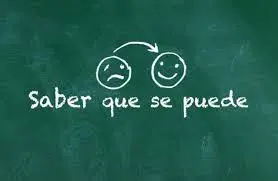 Saber que se puede